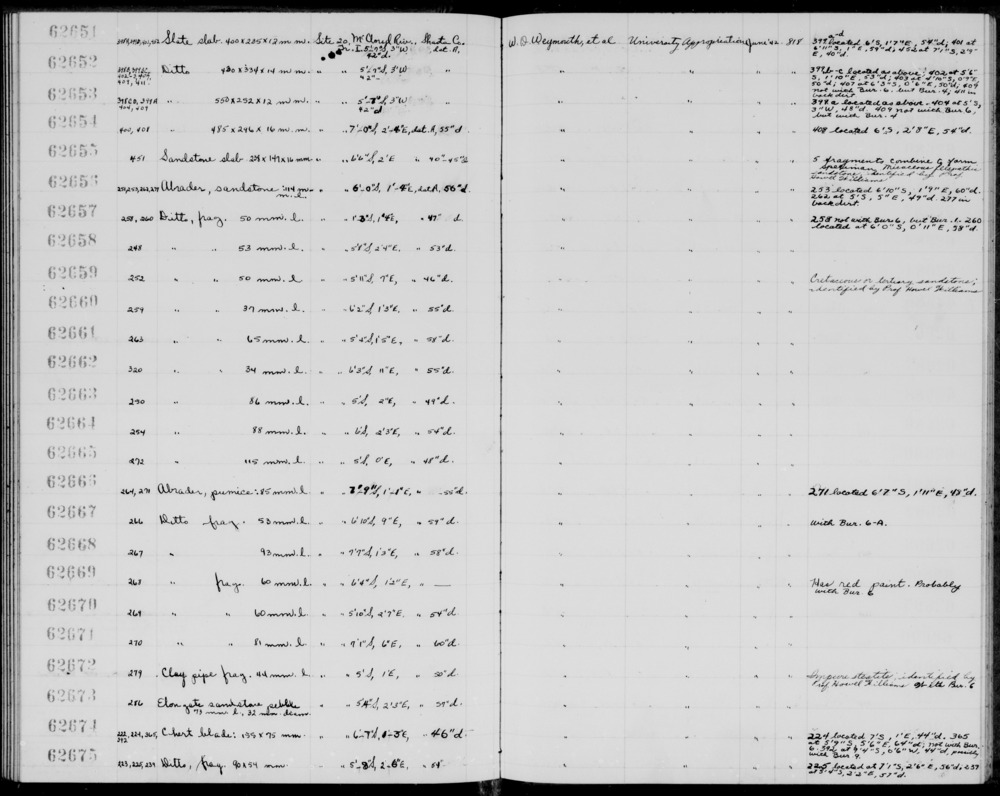 62651 Slate slab. 400x235x12 m.m. Site 20, McCloud River, Shasta Co. W. D. Weymouth, et al University Appropriation June '42. 818 located 6'S, 1'7"E, 54"d; 401 at
62652 Ditto 430x334x14 m.m. " 5'-9"S, 3"W " " " " " 397b-c located as above; 402 at 5'6"
S, 1'10"E, 53"d; 403 at 4'10"S, 0'9"E,
50"d; 407 at 6'3"S, 0'6"E, 50"d; 409
not with Bur. 6. but Bur. 4; 411 in
back dirt
62653 " 550x292x12 m.m. " " 3"W " " " " " 398a located as above. 404 at 5'5,
3"W, 48"d. 409 not with Bur. 6,
but with Bur. 4
62654 405, 408 " 485x246x16 m.m. " 7'-0"S, 2'-4"E, lot A, 55"d " " " " 408 located 6'S, 2'8"E, 54"d.
62655 451 Sandstone slab 6'6"S, 2'E " 40"-45"d " " " " 5 fragments combine to form
specimen. Micaceous
sandstone, identified by Prof
Howel Williams
62656 Abrader, sandstone: 114 m.m. l. " 6'-0"S, 1'-4"E, lot A, 56"d. " " " " 253 located 6'10"S, 1'9"E, 60"d.
262 at 5'S, 5"E, 49"d. 277 in
back dirt
62657 258, 260 Ditto, frag. 50 mm. l. " " 47" d. " " " " 258 not with Bur. 6, but Bur. 1. 260
located at 6'0"S, 0'11"E, 38"d.
62658 248 " " 53 mm. l. " " 5'8"S, 2'4"E, " 53"d. " " " "
62659 252 " " 50 mm. l. " " 5'11"S, 7"E, " 46"d. " " " " Cretaceous or tertiary sandstone;
identified by Prof Howel Williams
62660 259 " 37 mm. l. " " 6'2"S, 1'3"E, " 55"d. " " " "
62661 263 " 65 mm. l. " " 5'2"S, 1'5"E, " 58"d. " " " "
62662 320 " 34 mm. l. " " 6'3"S, 11"E, " 55"d. " " " "
62663 250 " 86 mm. l. " " 5'S, 2"E, " 49"d. " " " "
62664 254 " 88 mm. l. " " 6'S, 2'3"E, " 54"d. " " " "
62665 272 " 115 mm. l. " " 5'S, 0'E, " 48"d. " " " "
62666 264, 271 Abrader, pumice: 85 mm. l. " 1'-1"E, " 55"d. " " " " 271 located 6'7"S, 1'11"E, 48"d.
62667 266 Ditto frag. 53 mm. l. " " 6'10"S, 9"E, " 59"d. " " " " With Bur. 6-A.
62668 267 " 93 mm. l. " " 7'7"S, 1'3"E, " 58"d. " " " "
62669 268 " frag. 60 mm. l. " " 6'4"S, 1'2"E, " — " " " " Has red paint. Probably
with Bur. 6
62670 269 " " 60 mm. l. " " 5'10"S, 2'7"E. " 54"d. " " " "
62671 270 " " 81 mm. l. " " 7'1"S, 6"E, " 60"d. " " " "
62672 279 Clay pipe frag. 44 mm. l. " " 5'S, 1'E, " 50"d. " " " " Impure steatite; identified by
Prof Howel Williams With Bur. 6
62673 286 Elongate sandstone pebble " " 2'3"E, " 39"d. " " " "
73 mm. l, 32 mm diam.
62674 Chert blade: 135x75 mm. " " " 46"d. " " " " 224 located 7'S, 1'E, 44"d. 365
at 5'9"S, 5'6"E, 64"d; not with Bur.
6. 392 at 4'4"S, 0'6"W, 44"d, possibly
with Bur. 9.
62675 223, 225, 237 Ditto, frag. 90x54 mm. " " " 54" " " " " 225 located at 7'1"S, 2'6"E, 56"d, 237
2'2"E, 57"d.